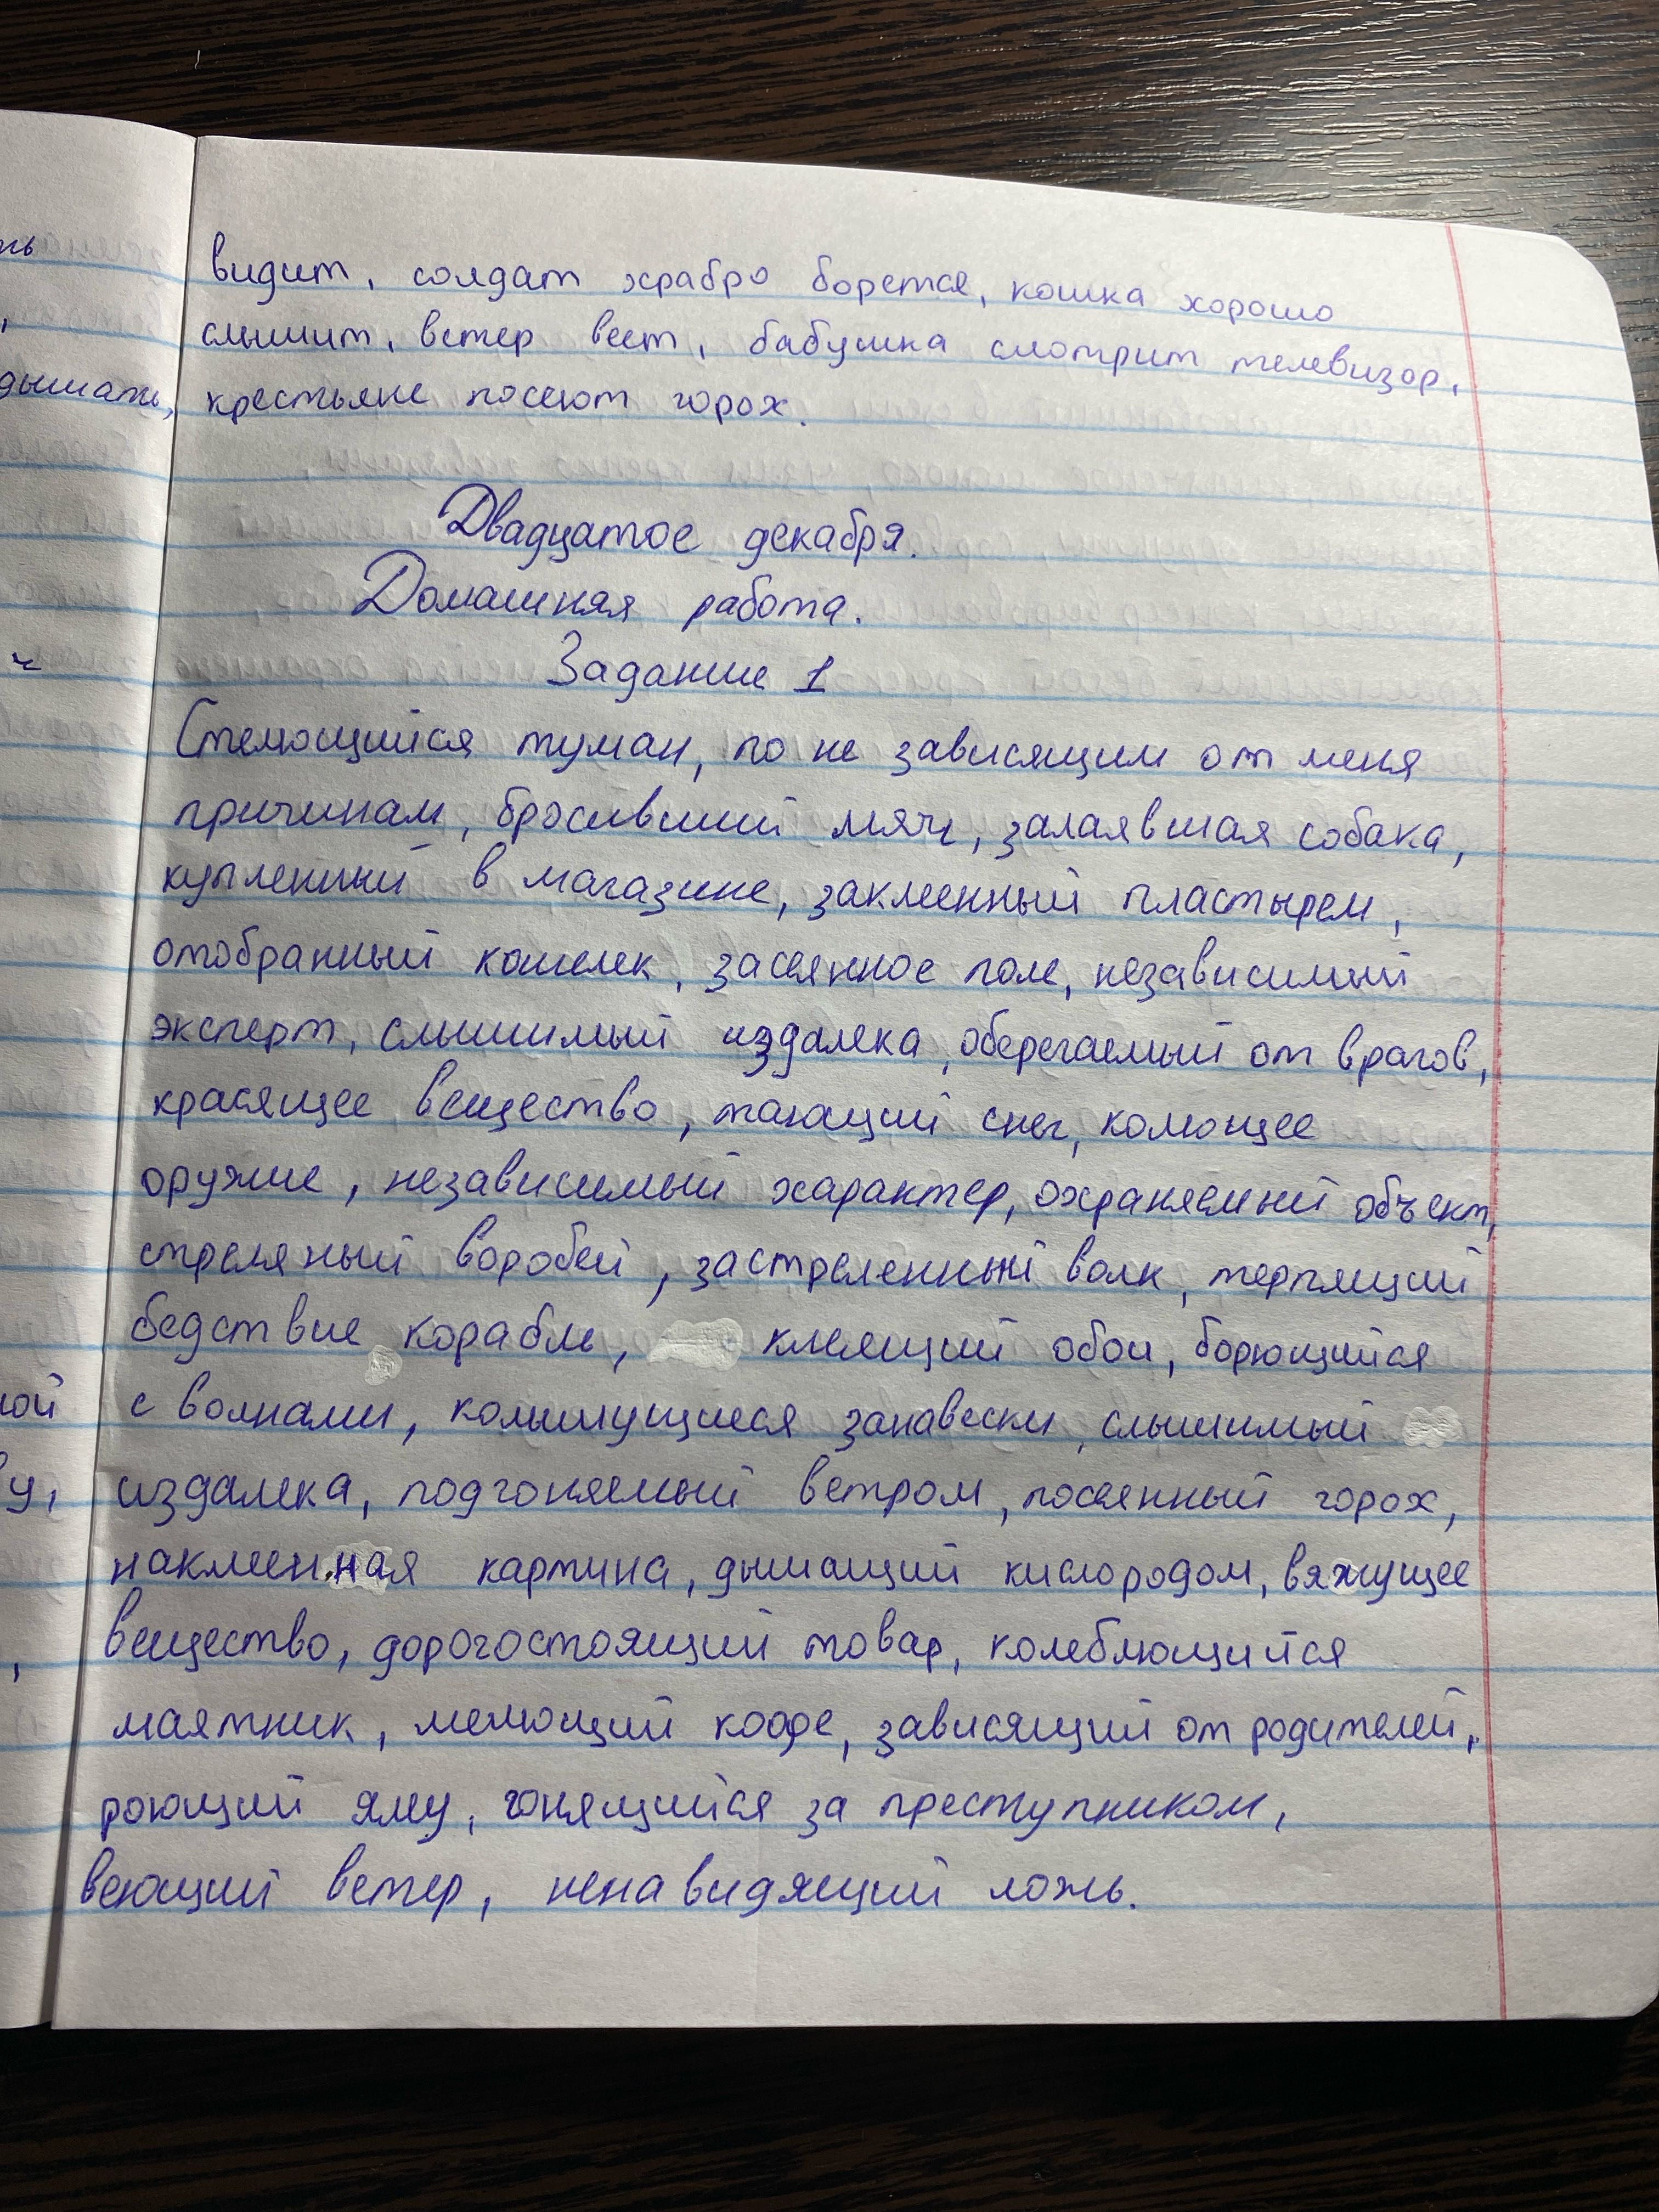 видит, солдат храбро борется, кошка хорошо
слышит, ветер веет, бабушка смотрит телевизор,
дышать,
крестьяне посеют горох.
Двадцатое декабря.
Домашняя работа.
Задание 1
Стелющийся туман, по не зависящим от меня
причинам, бросивший мяч, залаявшая собака,
купленный в магазине, заклеенный пластырем,
отобранный кошелек, засеянное поле, независимый
эксперт, слышимый издалека, оберегаемый от врагов,
красящее вещество, тающий снег, колющее
оружие, независимый характер, охраняемый объект,
стреляный воробей, застреленный волк, терпящий
бедствие корабль, клеящий обои, борющийся
с волнами, колышущиеся занавески, слышимый
издалека, подгоняемый ветром, посеянный горох,
наклеенная картина, дышащий кислородом, вяжущее
вещество, дорогостоящий товар, колеблющийся
маятник, мелющий кофе, зависящий от родителей,
роющий яму, гонящийся за преступником,
веющий ветер, ненавидящий ложь.